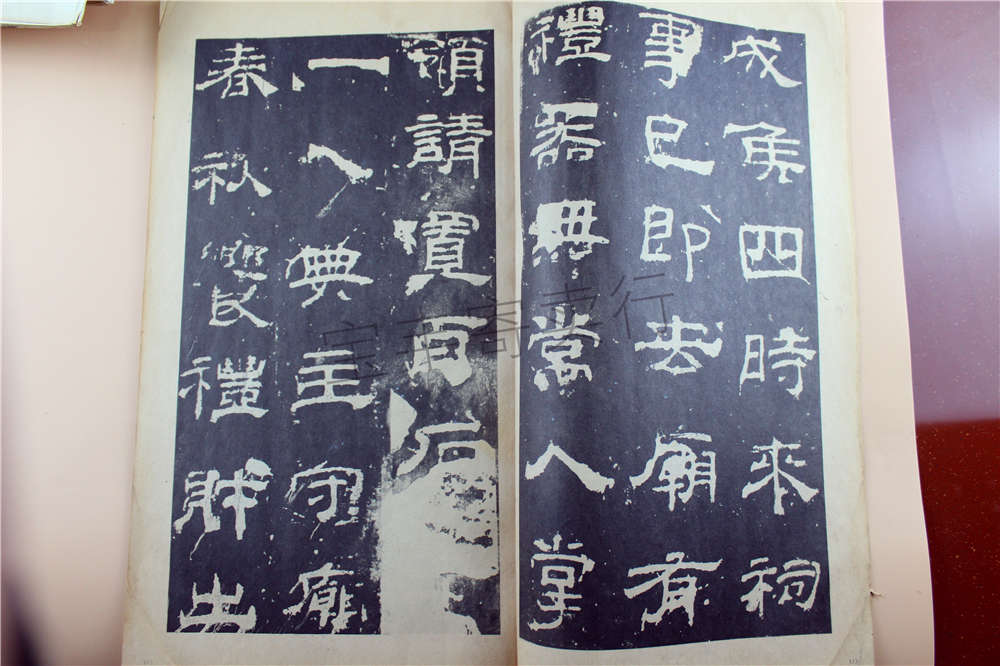 成侯四時來祠
事已即去廟有
禮器無常人掌
領請置百石
一人典主守廟
春秋饗禮財出
宝丰寄卖行